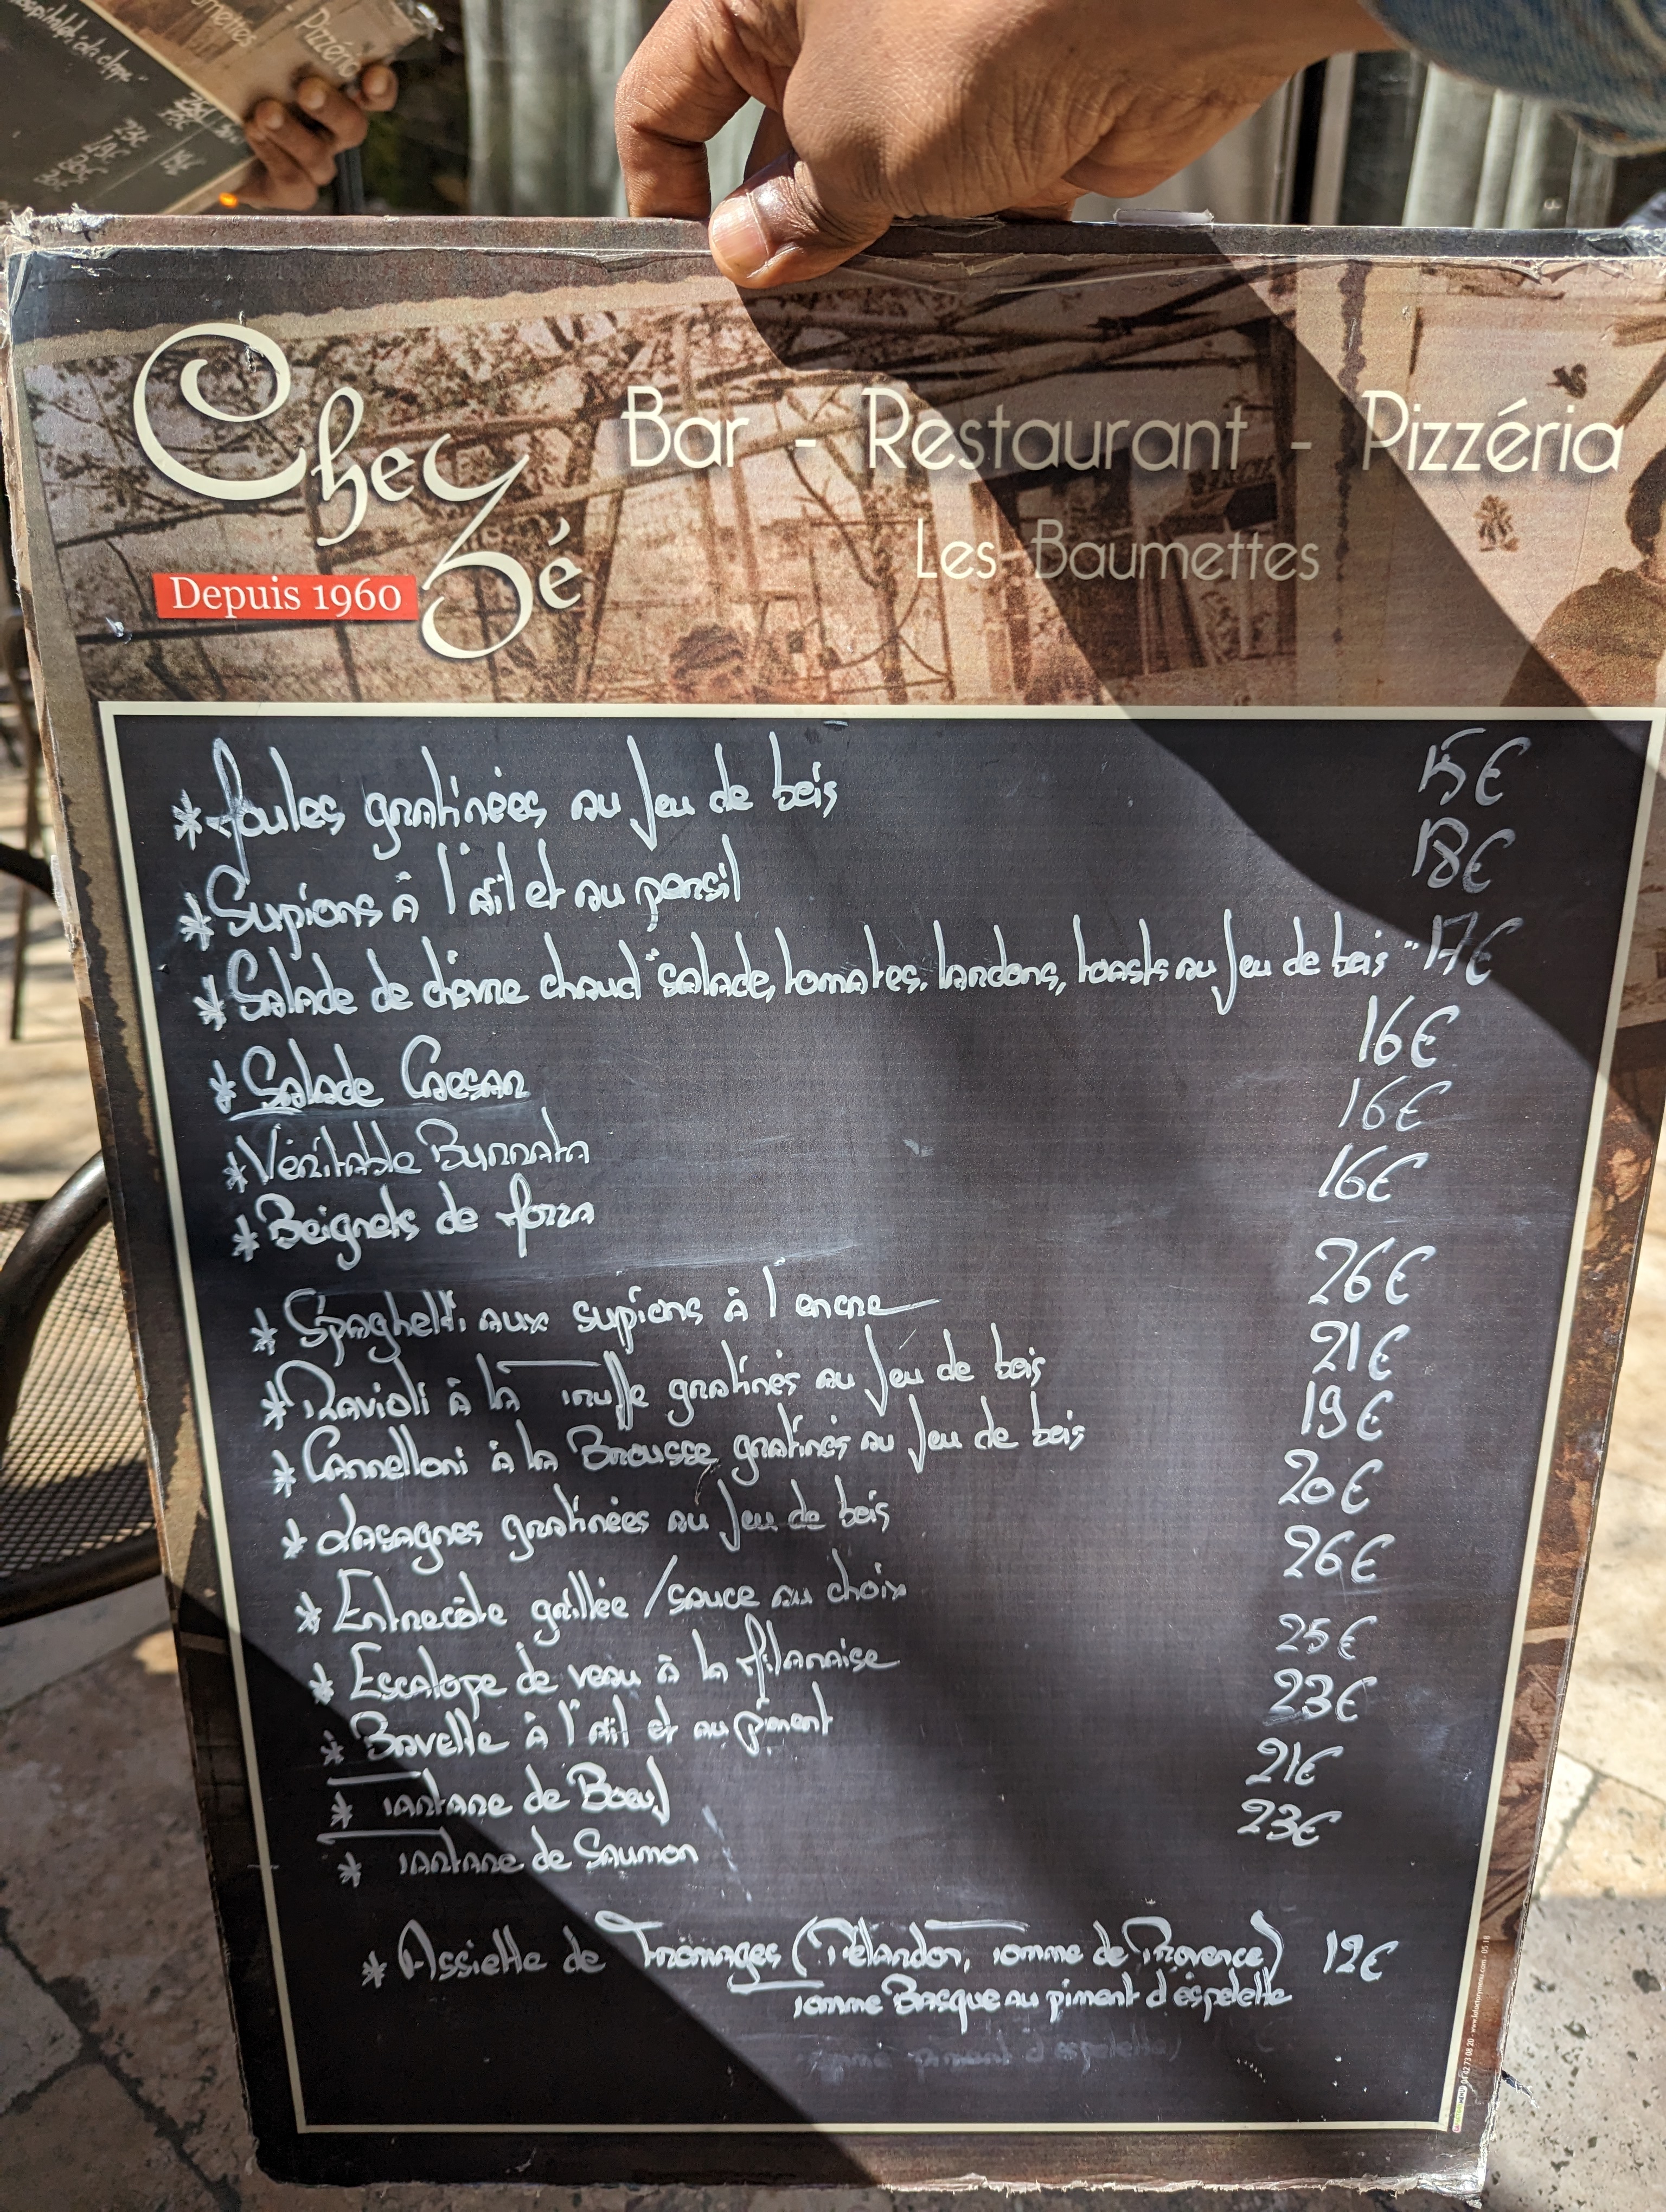 Pizzéria
Chez Zé
Depuis 1960
Bar - Restaurant - Pizzéria
Les Baumettes
* Moules gratinées au feu de bois 15€
* Supions à l'ail et au persil 18€
* Salade de chèvre chaud "salade, tomates, lardons, toasts au feu de bois" 17€
* Salade Caesar 16€
* Véritable Burrata 16€
* Beignets de Mozza 16€
* Spaghetti aux supions à l'encre 26€
* Ravioli à la Truffe gratinés au feu de bois 21€
* Cannelloni à la Brousse gratinés au feu de bois 19€
* Lasagnes gratinées au feu de bois 20€
* Entrecôte grillée / sauce au choix 26€
* Escalope de veau à la Milanaise 25€
* Bavette à l'ail et au piment 23€
* Tartare de Boeuf 21€
* Tartare de Saumon 23€
* Assiette de Fromages (Pélardon, Tomme de Provence) 12€
Tomme Basque au piment d'éspelette
piment d'espelette)